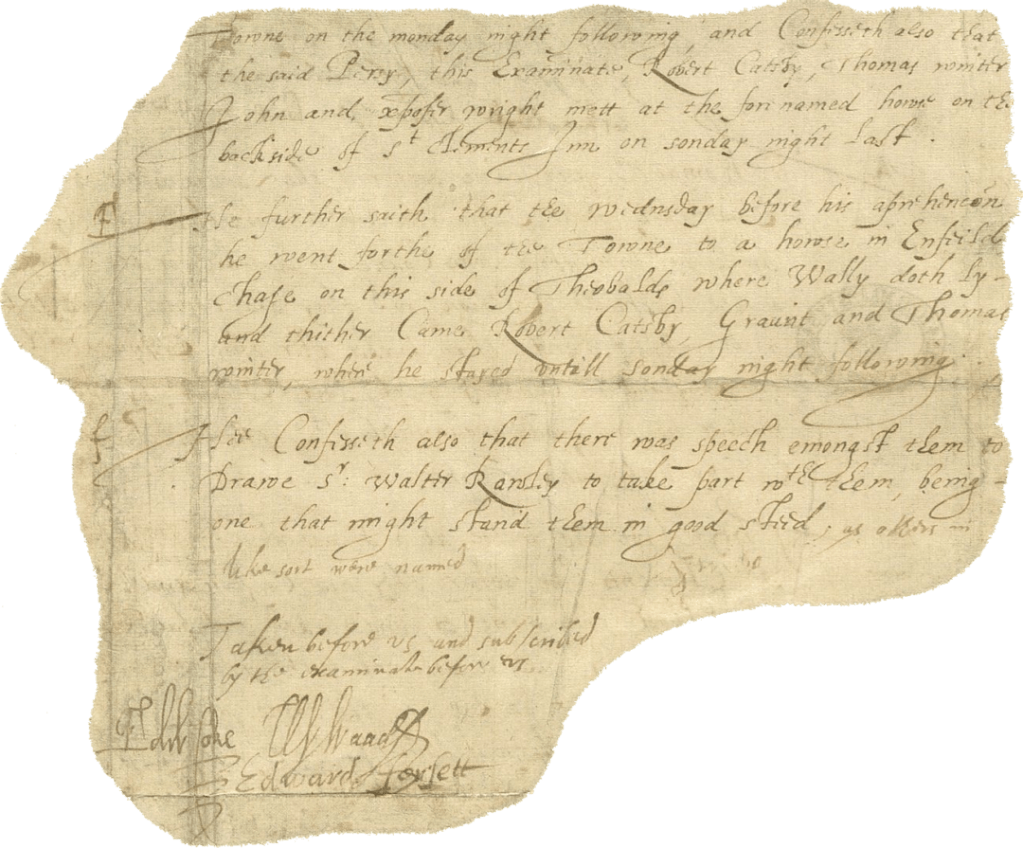 Towne on the monday night following, and Confesseth also that
the said Percy, this Examinate, Robert Catsby, Thomas winter
John and xpofer wright mett at the forenamed howse on the
backside of St Clements Inn on sonday night last.
F
He further saith that the wednsday before his aprehencon
he went forthe of the Towne to a howse in Enfeild
Chase on this side of Theobalds where Wally doth ly
and thither Came Robert Catsby, Graunt and Thomas
winter, where he stayed untill sonday night following.
f
Hee Confesseth also that there was speech emongst them to
Drawe Sr: Walter Rawley to take part wth them, being
one that might stand them in good steed, as others in
like sort were named
Taken before us and subscribed
by the examinate before us
Edw Coke W Waad
Edward Forsett